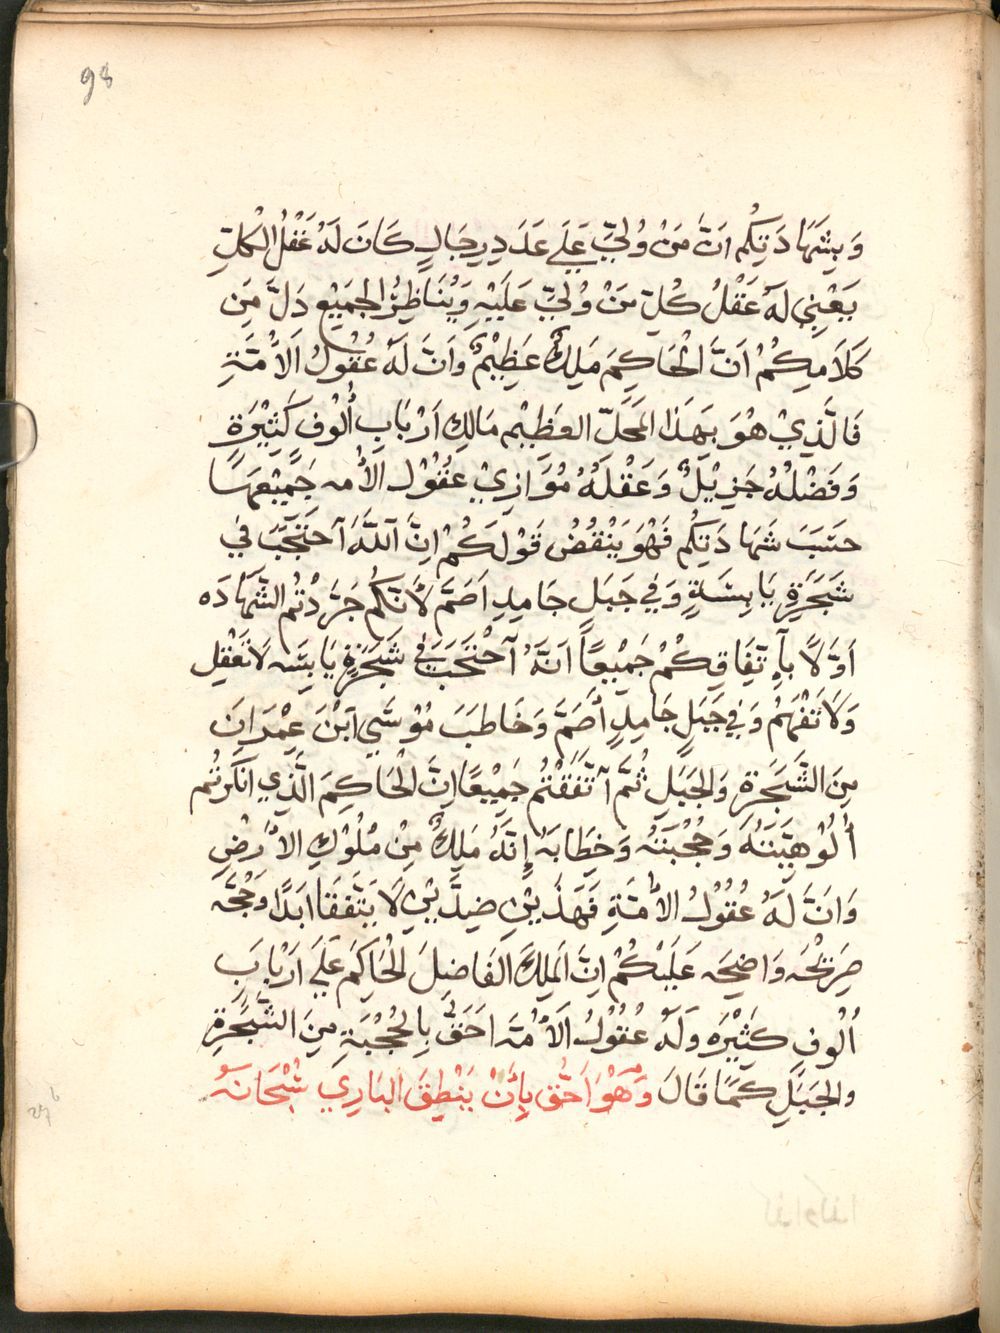 98
وَبِشَهَادَتِكُم اَنَّ مَنْ وُلِّيَ عَلَي عَدَدِ رِجَالٍ كَانَ لَهُ عَقْلُ الْكلِّ
يَعْنِي لَهُ عَقْلُ كُلِّ مَنْ وُلِّيَ عَلَيْهِ وَيُنَاظِرُ الجَمِيْع دَلَّ مِن
كَلَامِكُمْ اَنَّ الْحَاكِمَ مَلِكٌ عَظِيْمٌ وَاَنَّ لَهُ عُقُولُ الاُمَّةِ
فَالَّذِيْ هُوَ بِهَذَا المَحَلِّ العَظِيْم مَالِكِ اَرْبَابِ أُلُوفٍ كَثِيْرَةٍ
وَفَضْلُهُ جَزِيْلٌ وَعَقْلَهُ مُوَازِيْ عُقُوْلِ الأُمه جَمِيْعهَا
حَسَبَ شَهَادَتِكُم فَهُوَ يَنْقُضُ قَوْلَكُمْ اِنَّ اللَّهَ آحْتَجَبَ فِي
شَجَرَةٍ يَابِسَةٍ وَفِي جَبَلٍ جَامِدٍ اَصَمَّ لأَنَّكُم جَرَّدْتُم الشَّهَادَه
اَوَّلًا بِآِتّفَاقِكُمْ جَمِيْعاً اَنَّهُ آحْتَجَبَ فِي شَجَرَةٍ يَابِسَه لَا تَعْقِل
وَلَا تَفْهَمُ وَفِي جَبَلٍ جَامِدٍ أَصَمَّ وَخَاطَبَ مُوْسَي آبْنَ عِمْرَانَ
مِنَ الشَّجَرَةِ وَالجَبَلِ ثُمَّ آتَّفَقْتُم جَمِيْعًا اِنَّ الْحَاكِمَ الَّذِي انكَرتُم
أُلُوْهِيَّتَهُ وَحُجْبَتَهُ وَخِطَابَهُ إِنَّهُ مَلِكٌ مِنْ مُلُوْكِ الأَرْضِ
وَانَّ لَهُ عُقُوْلُ الاُمَّةِ فَهَذَيْنِ ضِدَّيْنِ لَا يَتَّفِقَا ابَدًا وَحُجَّه
صَرِيْحَه وَاضِحَه عَلَيْكُمْ اِنَّ المَلِكَ الفَاضِلَ الْحَاكِمَ عَلَي اَرْبَابِ
أُلُوفٍ كَثِيْرَه وَلَهُ عُقُوْلُ الاُمَّة اَحَقُّ بِالحُجْبَةِ مِنَ الشَّجَرَةِ
والجَبَلِ كَمَا قَالَ وَهُوَ اَحَقّ بِأَنْ يَنْطِقَ البَارِي سُبْحَانَهُ